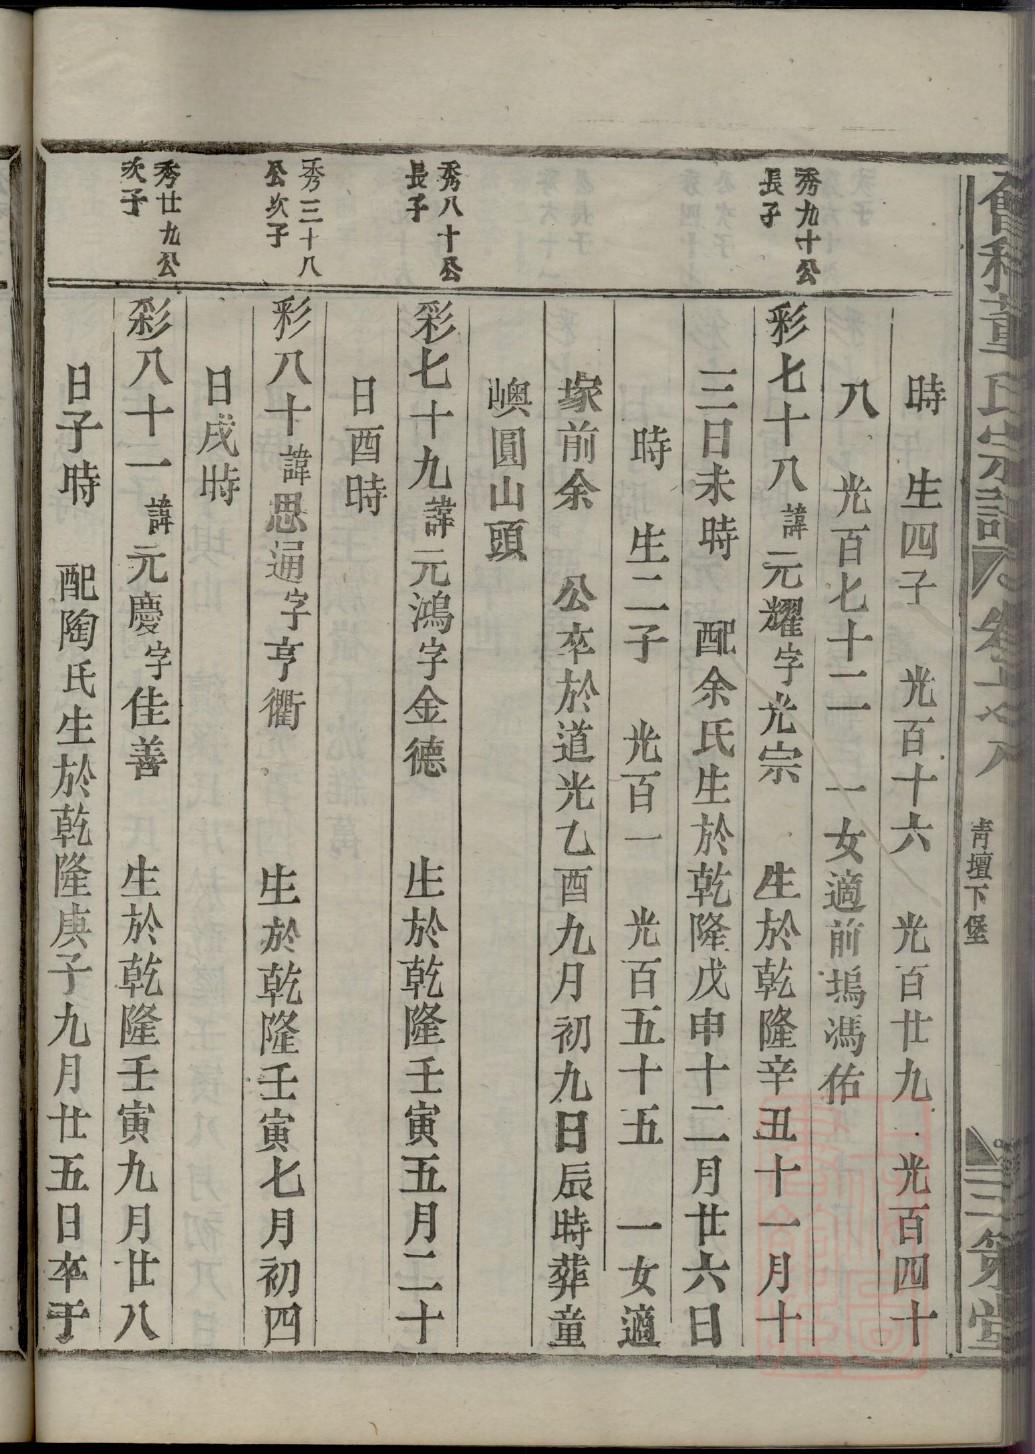 會稽董氏宗譜
青壇下堡
三策堂
時 生四子 光百十六 光百廿九 光百四十
八 光百七十二 一女適前塢馮佑
秀九十公
長子
彩七十八諱元耀字光宗 生於乾隆辛丑十一月十
三日未時 配余氏生於乾隆戊申十二月廿六日
時 生二子 光百一 光百五十五 一女適
塚前余 公卒於道光乙酉九月初九日辰時葬童
嶼圓山頭
秀八十公
長子
彩七十九諱元鴻字金德 生於乾隆壬寅五月二十
日酉時
秀三十八
公次子
彩八十諱思通字亨衢 生於乾隆壬寅七月初四
日戌時
秀廿九公
次子
彩八十一諱元慶字佳善 生於乾隆壬寅九月廿八
日子時 配陶氏生於乾隆庚子九月廿五日卒于